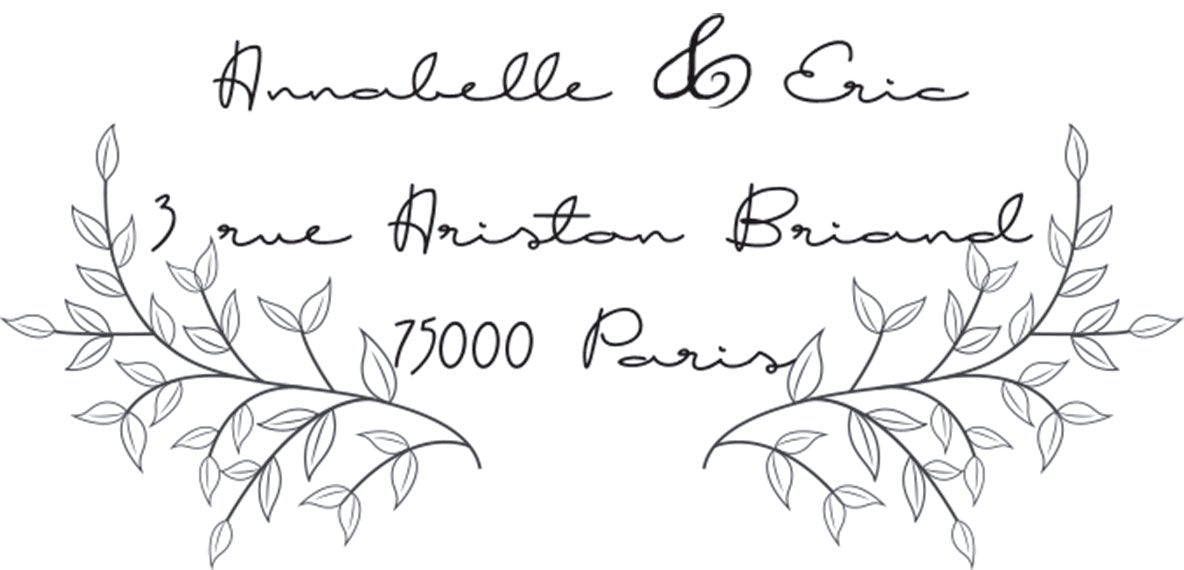 Annabelle & Eric
3 rue Aristan Briand
75000 Paris